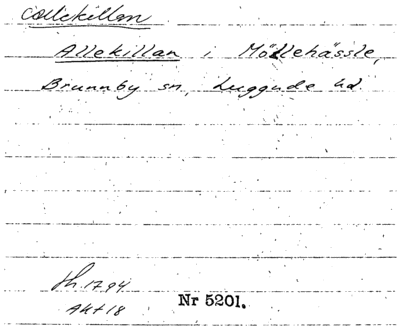 Allekillan
Allekillan i Möllehässle,
Brunnby sn, Luggude hd.
fh. 1794
Akt 18
Nr 5201.